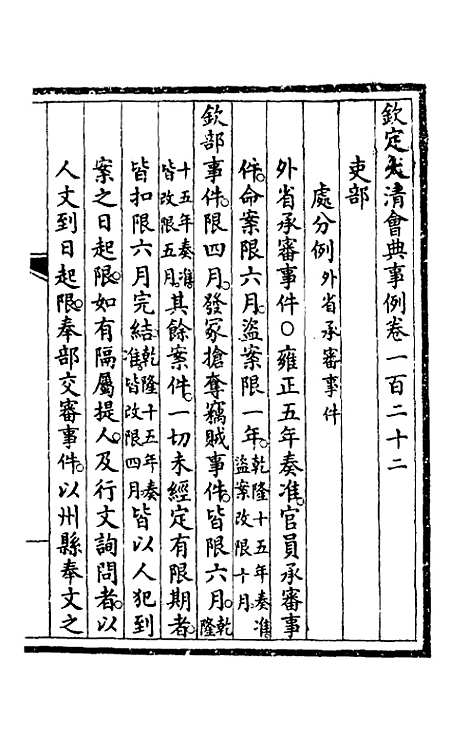 欽定大清會典事例卷一百二十二
吏部
處分例外省承審事件
外省承審事件○雍正五年奏准。官員承審事
件。命案限六月。盜案限一年。乾隆十五年奏准盜案改限十月。
欽部事件。限四月。發冢搶奪竊賊事件。皆限六月。乾隆
十五年奏準皆改限五月。其餘案件。一切未經定有限期者。
皆扣限六月完結。乾隆十五年奏准皆改限四月。皆以人犯到
案之日起限。如有隔屬提人。及行文詢問者。以
人文到日起限。奉部交審事件。以州縣奉文之